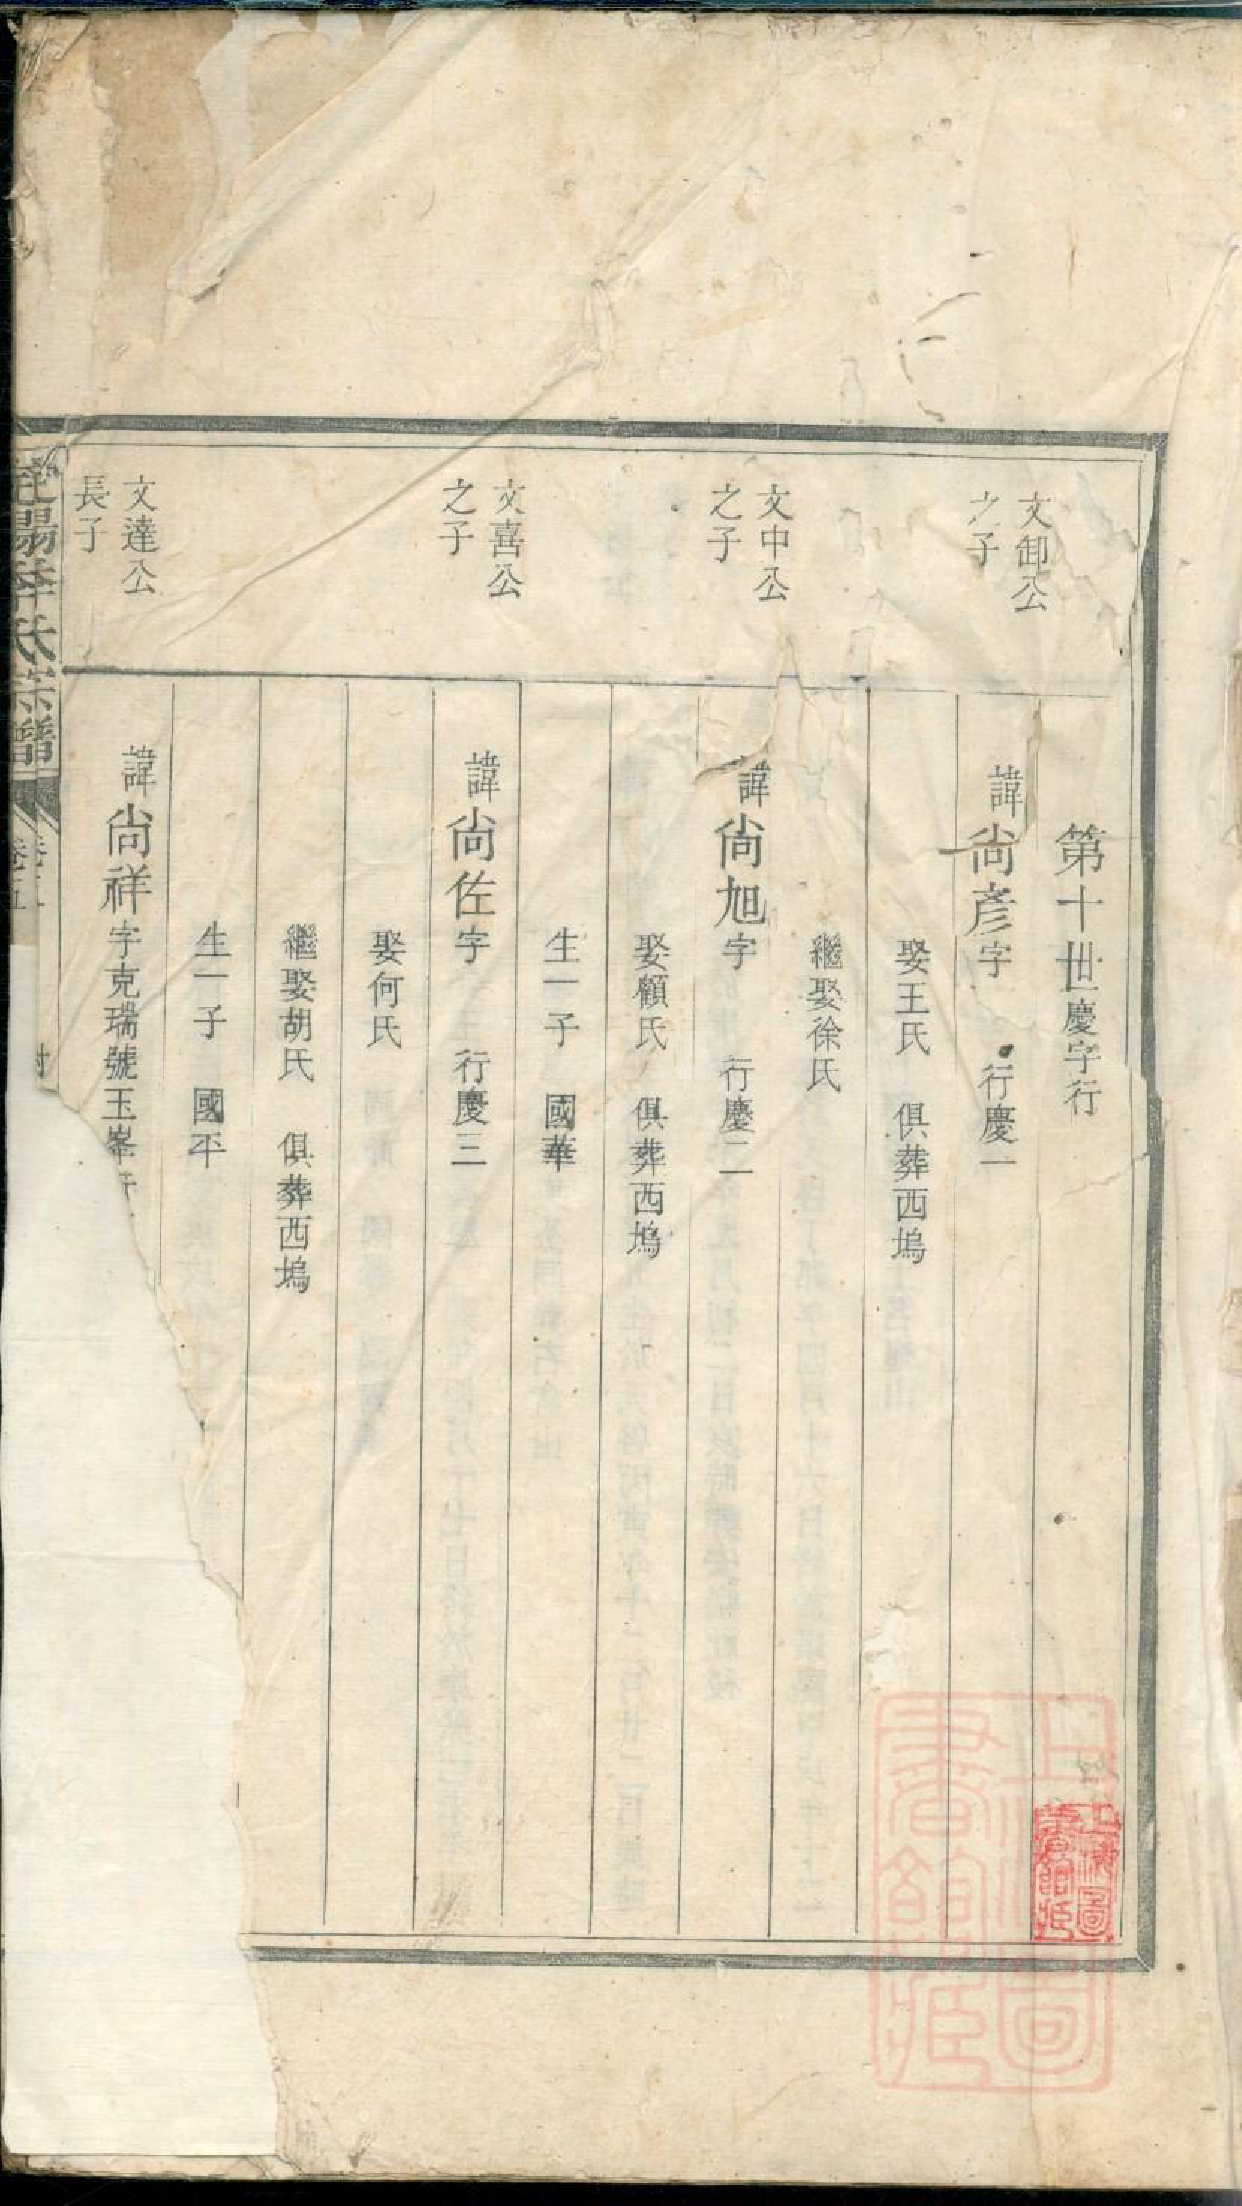 第十世慶字行
文卸公
之子
諱尙彥字 行慶一
娶王氏 俱葬西塢
繼娶徐氏
文中公
之子
諱尙旭字 行慶二
娶顧氏 俱葬西塢
生一子 國華
文喜公
之子
諱尙佐字 行慶三
娶何氏
繼娶胡氏 俱葬西塢
生一子 國平
文達公
長子
諱尙祥字克瑞號玉峯行
李氏宗譜
卷五
上海圖書館藏
上海圖書館藏